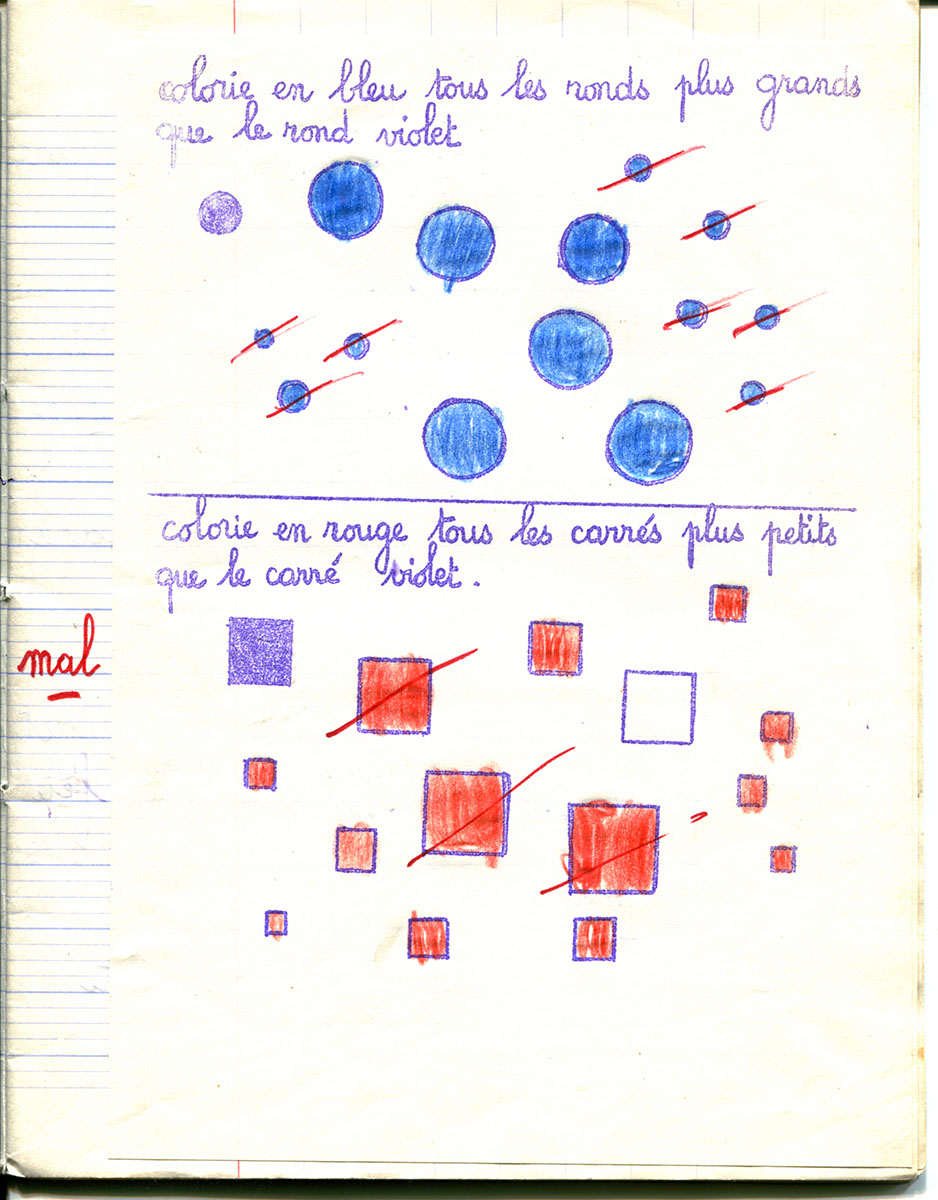 colorie en bleu tous les ronds plus grands
que le rond violet
colorie en rouge tous les carrés plus petits
que le carré violet.
mal